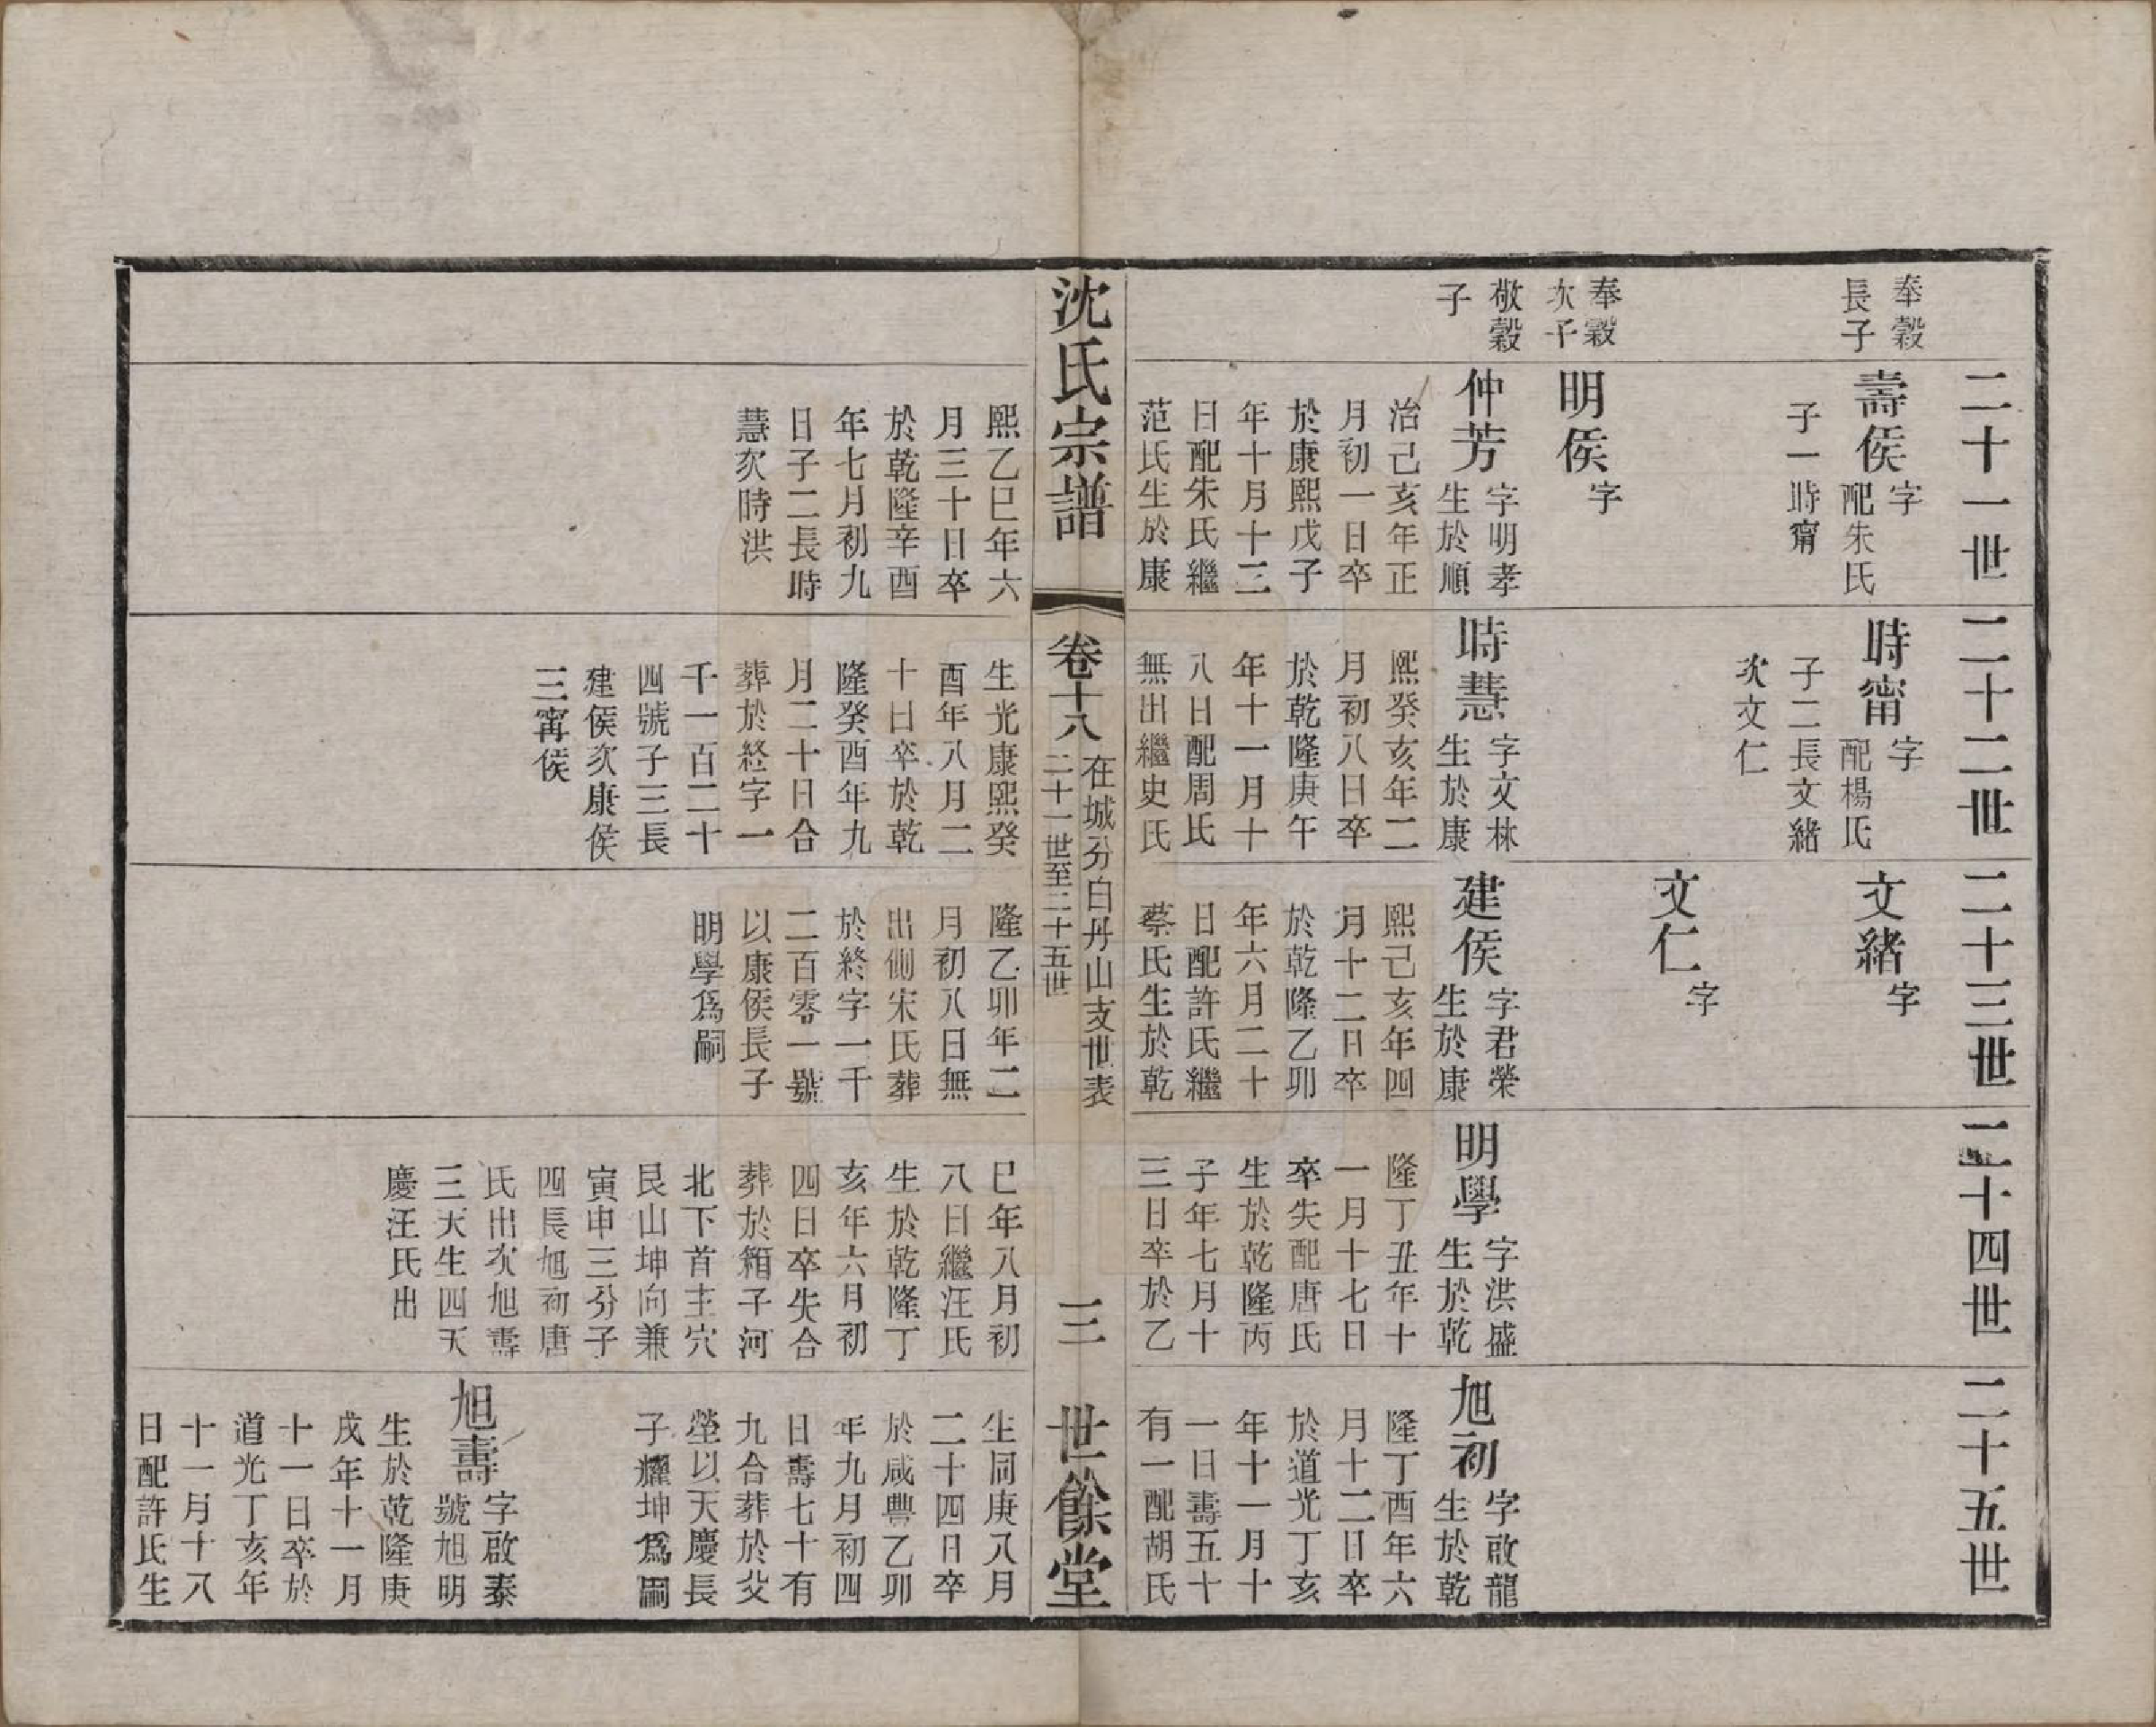 二十一世
奉穀
長子
壽侯
字
配朱氏
子一時甯
奉穀
次子
明侯
字
敬穀
子
仲芳
字明孝
生於順
治己亥年正
月初一日卒
於康熙戊子
年十月十二
日配朱氏繼
范氏生於康
熙乙巳年六
月三十日卒
於乾隆辛酉
年七月初九
日子二長時
慧次時洪
二十二世
時甯
字
配楊氏
子二長文緒
次文仁
時慧
字文林
生於康
熙癸亥年二
月初八日卒
於乾隆庚午
年十一月十
八日配周氏
無出繼史氏
生光康熙癸
酉年八月二
十日卒於乾
隆癸酉年九
月二十日合
葬於終字一
千一百二十
四號子三長
建侯次康侯
三甯侯
二十三世
文緒
字
文仁
字
建侯
字君榮
生於康
熙己亥年四
月十二日卒
於乾隆乙卯
年六月二十
日配許氏繼
蔡氏生於乾
隆乙卯年二
月初八日無
出側宋氏葬
於終字一千
二百零一號
以康侯長子
明學爲嗣
二十四世
明學
字洪盛
生於乾
隆丁丑年十
一月十七日
卒失配唐氏
生於乾隆丙
子年七月十
三日卒於乙
巳年八月初
八日繼汪氏
生於乾隆丁
亥年六月初
四日卒失合
葬於箱子河
北下首主穴
艮山坤向兼
寅申三分子
四長旭初唐
氏出次旭壽
三天生四天
慶汪氏出
二十五世
旭初
字啟龍
生於乾
隆丁酉年六
月十二日卒
於道光丁亥
年十一月十
一日壽五十
有一配胡氏
生同庚八月
二十四日卒
於咸豐乙卯
年九月初四
日壽七十有
九合葬於父
塋以天慶長
子耀坤爲嗣
旭壽
字啟泰
號旭明
生於乾隆庚
戌年十一月
十一日卒於
道光丁亥年
十一月十八
日配許氏生
沈氏宗譜
卷十八
在城分白丹山支世表
二十一世至二十五世
三
世餘堂